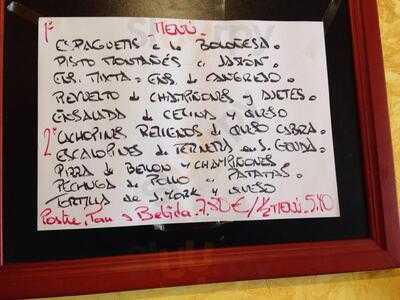 1º MENÚ.
ESPAGUETIS a la BOLOÑESA.
PISTO MONTAÑÉS o JAMÓN.
ENS. MIXTA = ENS. de CANGREJO.
REVUELTO de CHAMPIÑONES y AJETES.
ENSALADA de CECINA y QUESO
2º CACHOPINES RELLENOS de QUESO CABRA.
ESCALOPINES de TERNERA en S. GOUDA.
PIZZA de BEICON y CHAMPIÑONES
PECHUGA de POLLO PATATAS.
TORTILLA de J. YORK y QUESO
Postre, Pan y Bebida. 7,80€ / ½ MENÚ. 5,40